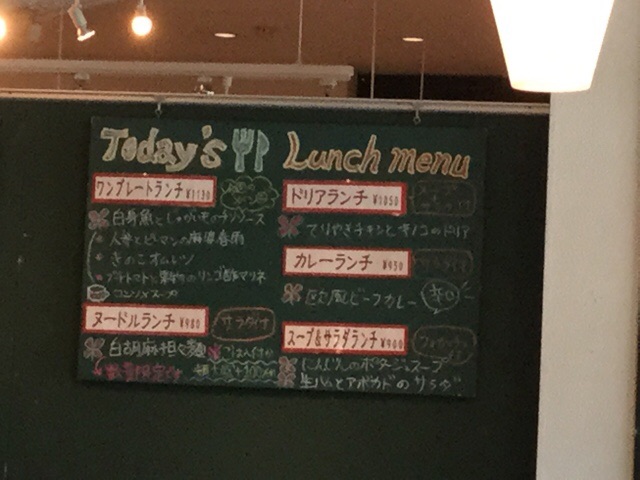 Today's Lunch menu
ワンプレートランチ ¥1130
白身魚とじゃがいものチリソース
人参とピーマンの麻婆春雨
きのこオムレツ
プチトマトと のリンゴ酢マリネ
コンソメスープ
ヌードルランチ ¥980
サラダ付
白胡麻担々麺
ごはん付
数量限定です
ドリアランチ ¥1050
てりやきチキンとキノコのドリア
カレーランチ ¥950
サラダ付
欧風ビーフカレー
辛口
スープ&サラダランチ ¥900
にんじんのポタージュスープ
生ハムとアボカドのサラダ